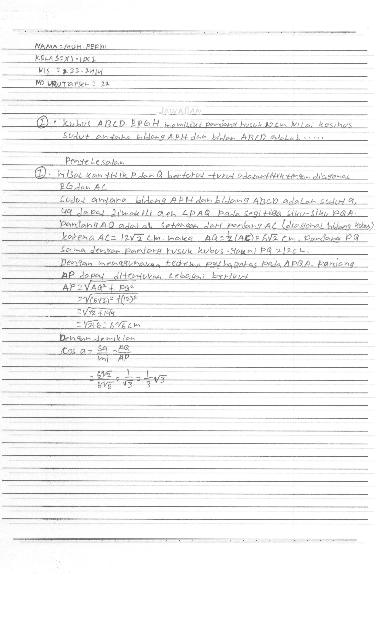 NAMA = MUH FEBRI
KELAS = XI.IPS 1
NIS =
NO URUT ABSEN = 22
JAWABAN
① • Kubus ABCD EFGH memiliki panjang rusuk 12 cm Nilai kosinus
sudut antara bidang AFH dan bidang ABCD adalah .....
Penyelesaian
①. misalkan titik P dan Q berturut turut adalah titik tengah diagonal
EG dan AC
Sudut antara bidang AFH dan bidang ABCD adalah sudut a,
yg dapat diwakili oleh ∠PAQ pada segitiga siku-siku PQA.
Panjang AQ adalah setengah dari panjang AC (diagonal bidang alas)
karena AC = 12√2 cm maka AQ = ½(AC) = 6√2 cm. Panjang PQ
sama dengan panjang rusuk kubus yakni PQ = 12 cm
Dengan menggunakan teorema pythagoras pada ∆PQA. Panjang
AP dapat ditentukan sebagai berikut
AP = √AQ² + PQ²
= √(6√2)² + (12)²
= √72 + 144
= √216 = 6√6 cm
Dengan demikian
cos a = sa/mi = AQ/AP
= 6√2/6√6 = 1/√3 = 1/3 √3